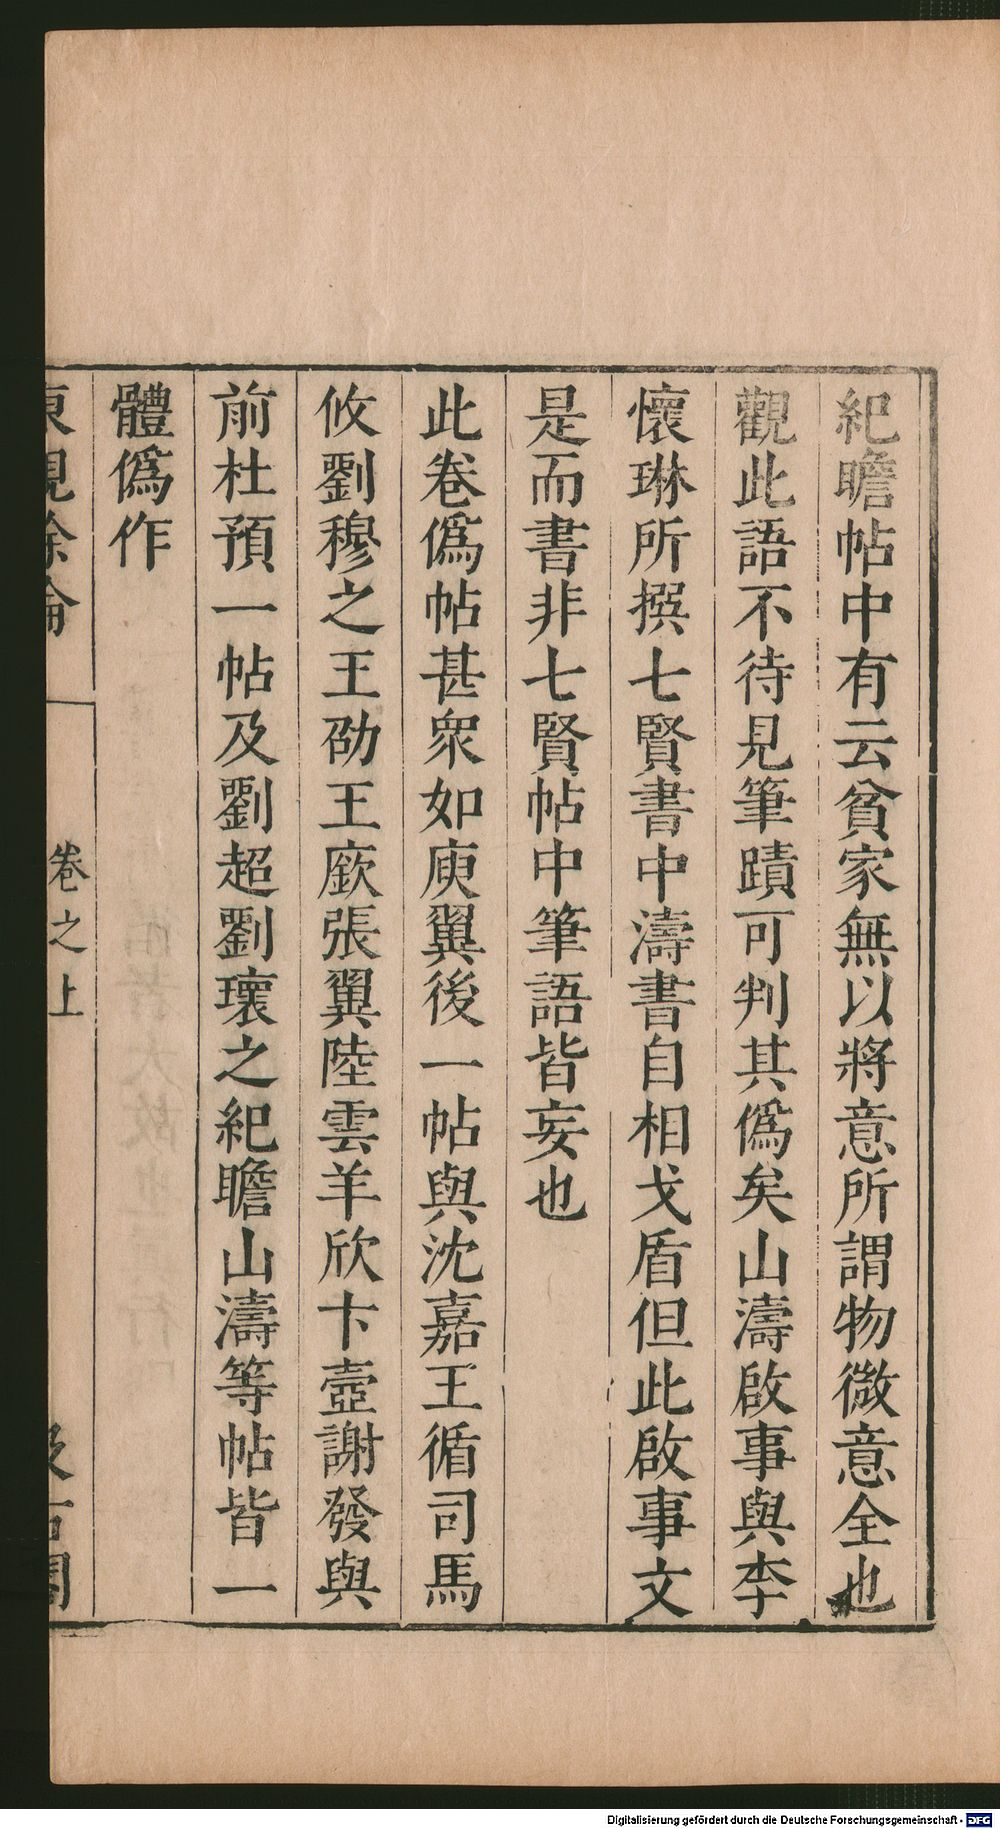 紀瞻帖中有云貧家無以將意所謂物微意全也
觀此語不待見筆蹟可判其僞矣山濤啟事與李
懷琳所撰七賢書中濤書自相戈盾但此啟事文
是而書非七賢帖中筆語皆妄也
此卷僞帖甚衆如庾翼後一帖與沈嘉王循司馬
攸劉穆之王劭王廞張翼陸雲羊欣卞壼謝發與
前杜預一帖及劉超劉瓌之紀瞻山濤等帖皆一
體僞作
東觀餘論
卷之上
汲古閣
Digitalisierung gefördert durch die Deutsche Forschungsgemeinschaft - DFG